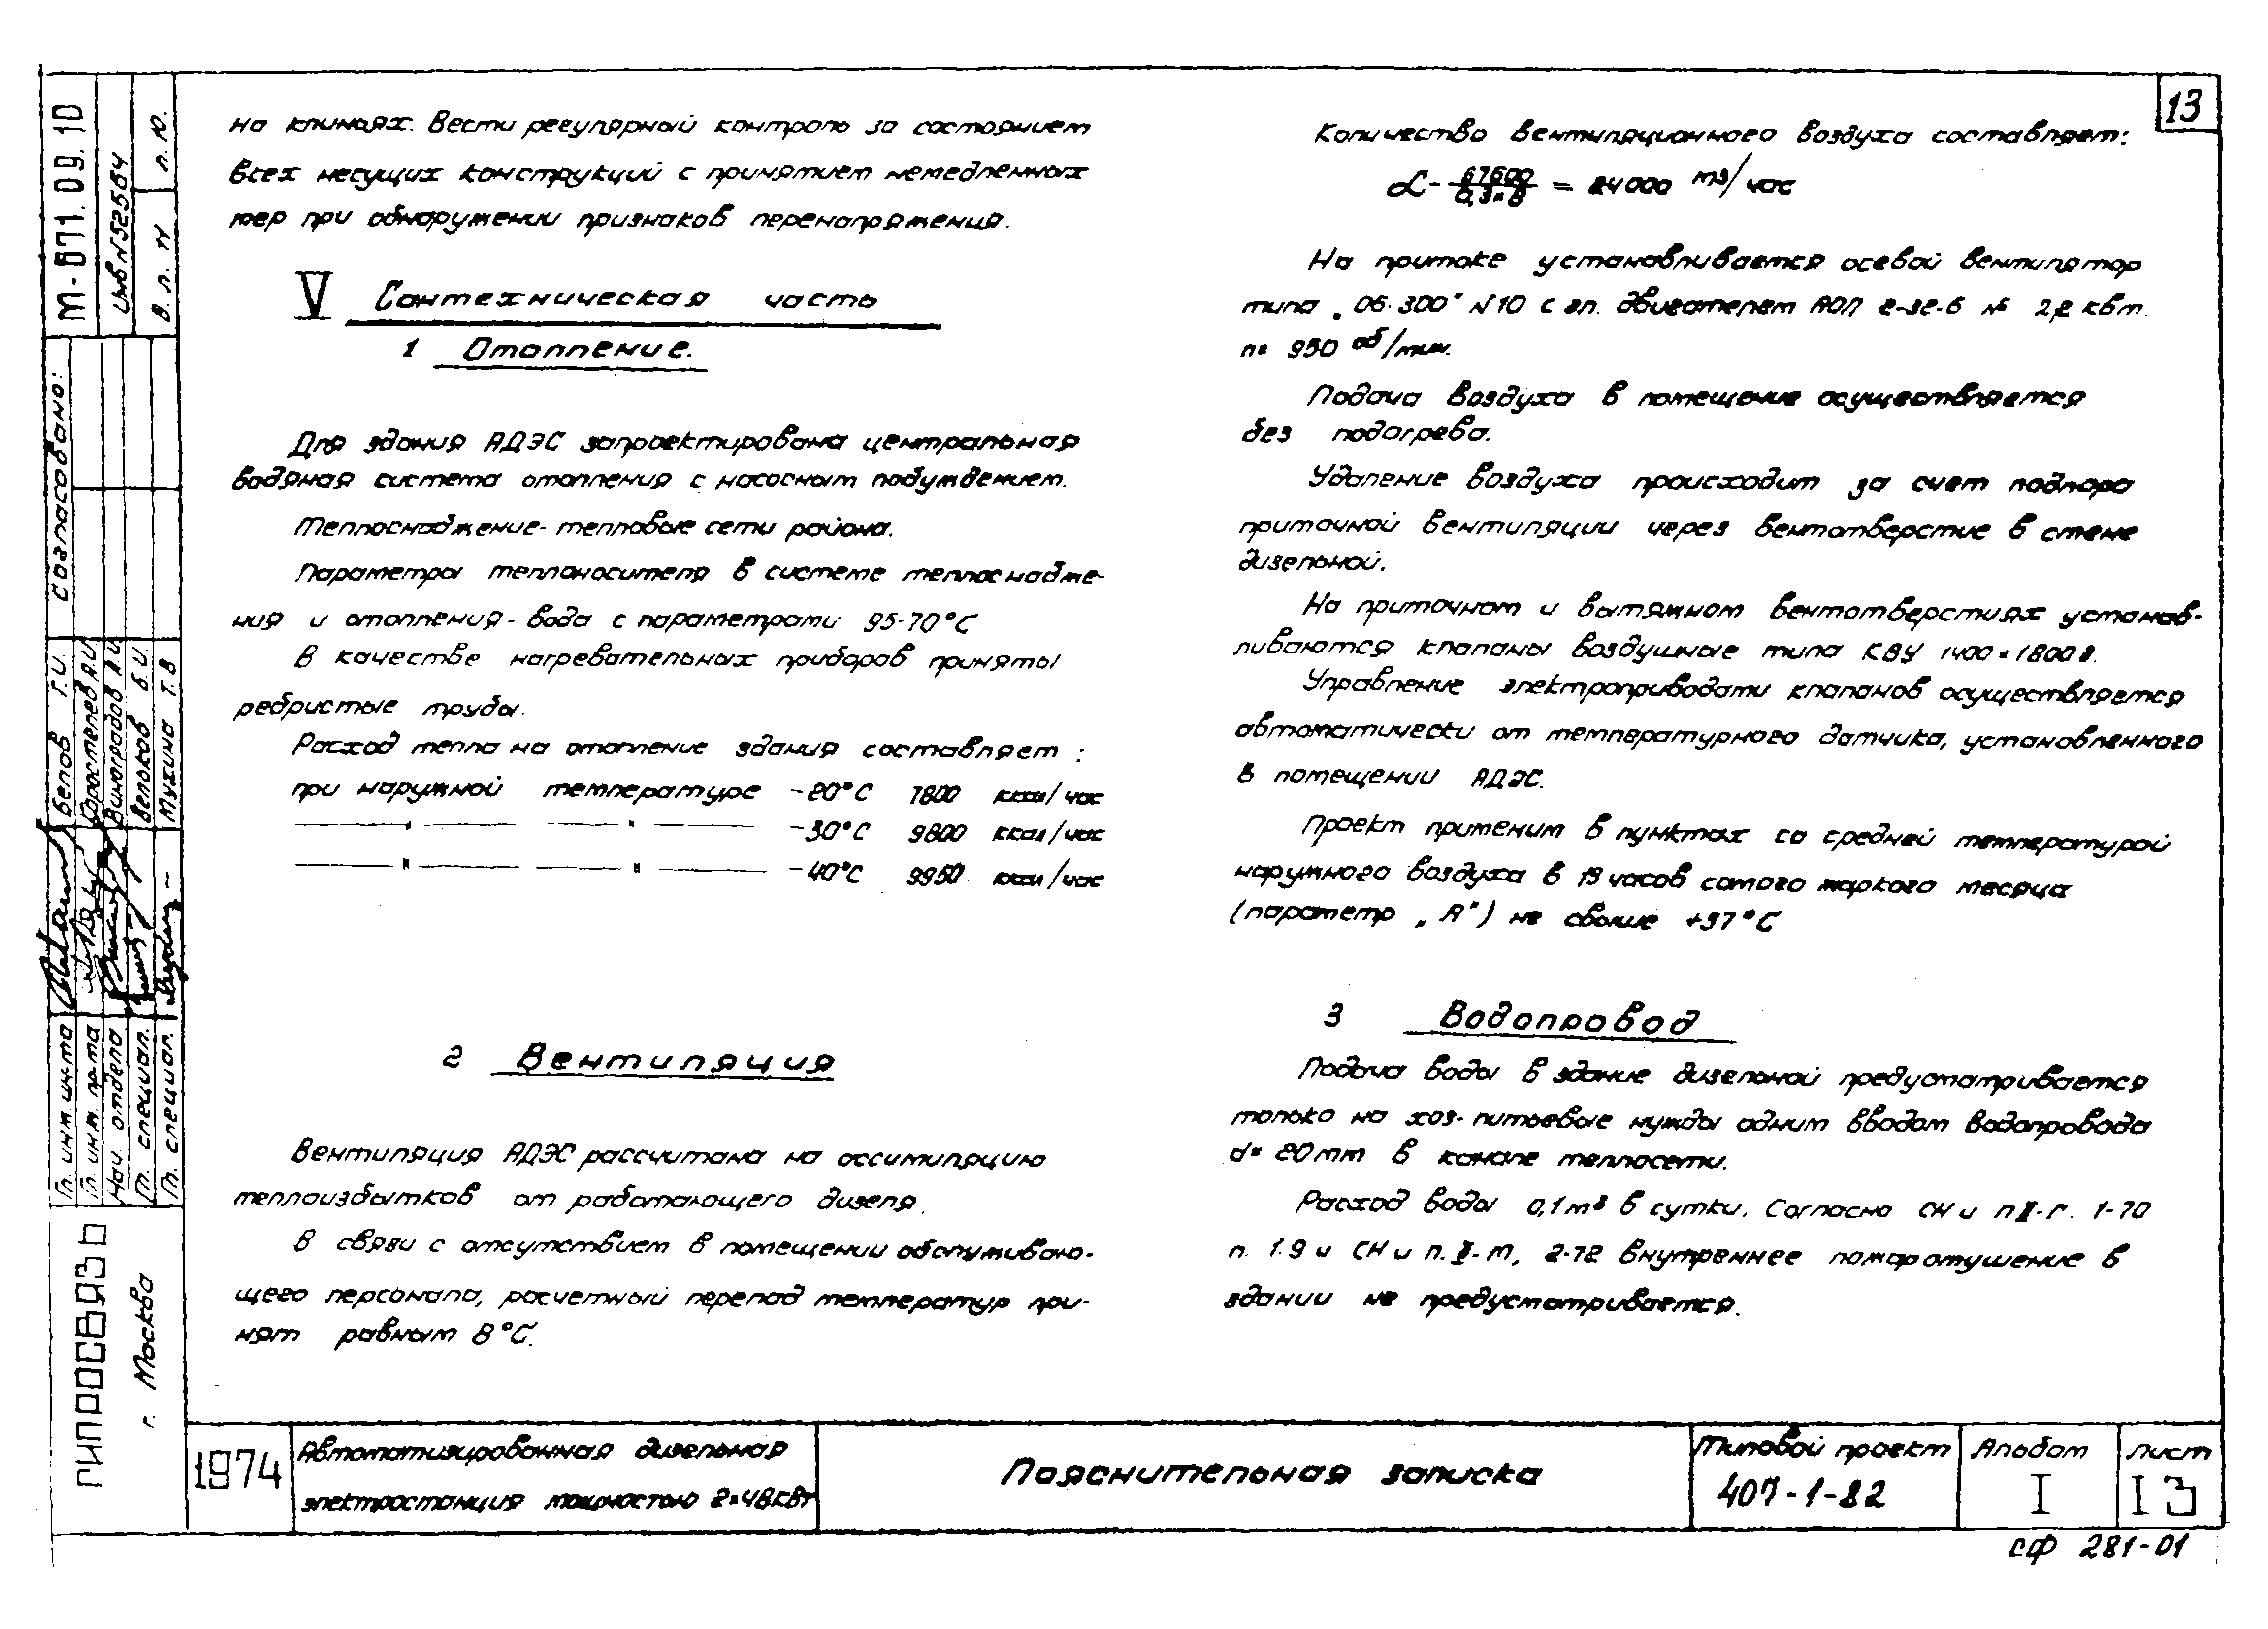 13
на клиньях. Вести регулярный контроль за состоянием
всех несущих конструкций с принятием немедленных
мер при обнаружении признаков перенапряжения.
V Сантехническая часть
1 Отопление.
Для здания АДЭС запроектирована центральная
водяная система отопления с насосным побуждением.
Теплоснабжение - тепловые сети района.
Параметры теплоносителя в системе теплоснабже-
ния и отопления - вода с параметрами 95-70°С
В качестве нагревательных приборов приняты
ребристые трубы.
Расход тепла на отопление здания составляет :
при наружной температуре -20°С 7800 ккал/час
—— " —— —— " —— -30°С 9800 ккал/час
—— " —— —— " —— -40°С 9950 ккал/час
2 Вентиляция
Вентиляция АДЭС рассчитана на ассимиляцию
теплоизбытков от работающего дизеля.
В связи с отсутствием в помещении обслуживаю-
щего персонала, расчетный перепад температур при-
нят равным 8°С.
Количество вентиляционного воздуха составляет:
L - 67600 / 0,3×8 = 24000 м3/час
На притоке устанавливается осевой вентилятор
типа „ 06-300" №10 с эл. двигателем АОЛ 2-32-6 N 2,2 квт.
n= 950 об/мин.
Подача воздуха в помещение осуществляется
без подогрева.
Удаление воздуха происходит за счет подпора
приточной вентиляции через вентотверстие в стене
дизельной.
На приточном и вытяжном вентотверстиях устанав-
ливаются клапаны воздушные типа КВУ 1400×1800
Управление электроприводами клапанов осуществляется
автоматически от температурного датчика, установленного
в помещении АДЭС.
Проект применим в пунктах со средней температурой
наружного воздуха в 13 часов самого жаркого месяца
(параметр „ А") не свыше +37°С
3 Водопровод
Подача воды в здание дизельной предусматривается
только на хоз-питьевые нужды одним вводом водопровода
d= 20мм в канале теплосети.
Расход воды 0,1м3 в сутки. Согласно СН и П II-Г. 1-70
п. 1.9 и СН и П. II-М, 2-72 внутреннее пожаротушение в
здании не предусматривается.
М-871.09.10
инв №52584
В. Л. Н Л. Ю.
согласовано:
Гл. инж ин-та Белов Г.И.
Гл. инж. пр-та Коростелев А.И
Нач. отдела Виноградов А.И
Гл. специал. Велоков Б.И.
Гл. специал. Мухина Т.В
ГИПРОСВЯЗЬ
г. Москва
1974
Автоматизированная дизельная
электростанция мощностью 2×48кВт
Пояснительная записка
Типовой проект
407-1-82
Альбом
I
лист
13
СФ 281-01